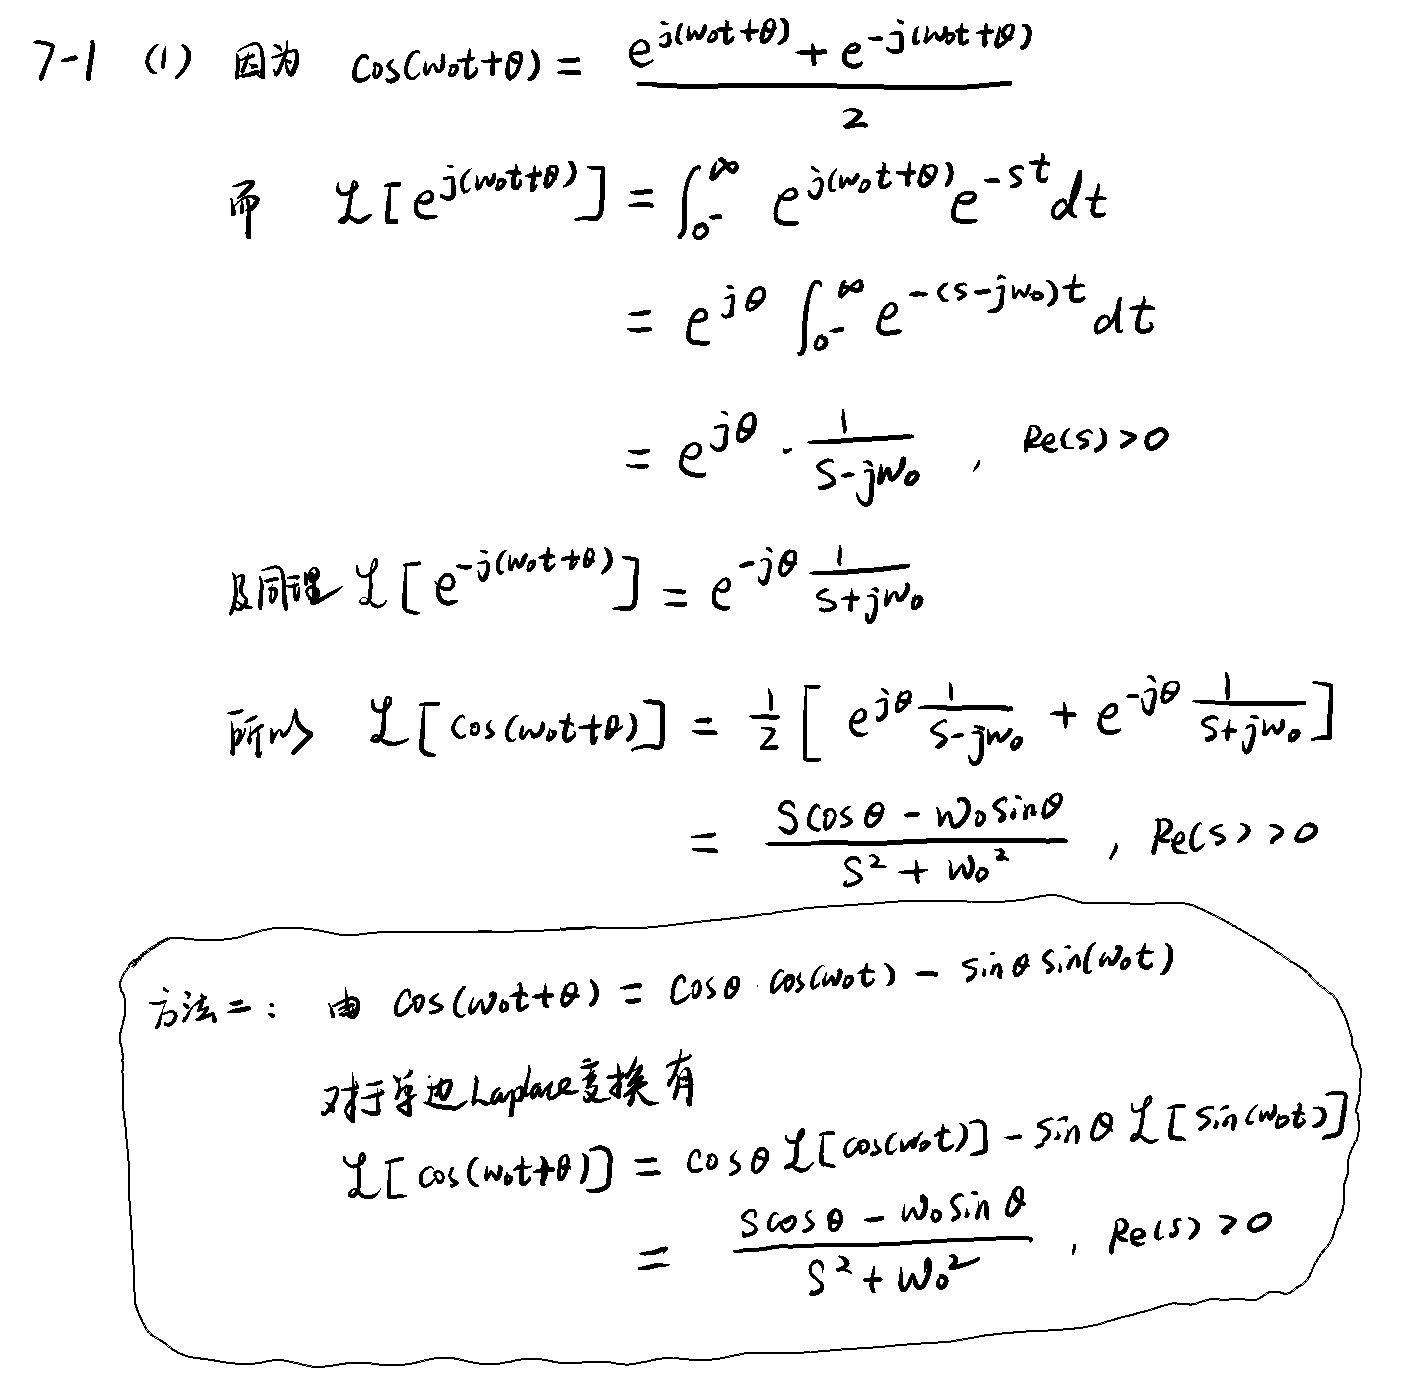 7-1 (1) 因为 cos(ω₀t+θ) = (e^{j(ω₀t+θ)} + e^{-j(ω₀t+θ)}) / 2
而 ℒ[e^{j(ω₀t+θ)}] = ∫_{0⁻}^{∞} e^{j(ω₀t+θ)} e^{-st} dt
= e^{jθ} ∫_{0⁻}^{∞} e^{-(s-jω₀)t} dt
= e^{jθ} · 1/(s-jω₀) , Re(s)>0
及同理 ℒ[e^{-j(ω₀t+θ)}] = e^{-jθ} 1/(s+jω₀)
所以 ℒ[cos(ω₀t+θ)] = 1/2 [e^{jθ} 1/(s-jω₀) + e^{-jθ} 1/(s+jω₀)]
= (s cosθ - ω₀ sinθ)/(s²+ω₀²) , Re(s)>0
方法二: 由 cos(ω₀t+θ) = cosθ cos(ω₀t) - sinθ sin(ω₀t)
对于单边Laplace变换有
ℒ[cos(ω₀t+θ)] = cosθ ℒ[cos(ω₀t)] - sinθ ℒ[sin(ω₀t)]
= (s cosθ - ω₀ sinθ)/(s²+ω₀²) , Re(s)>0